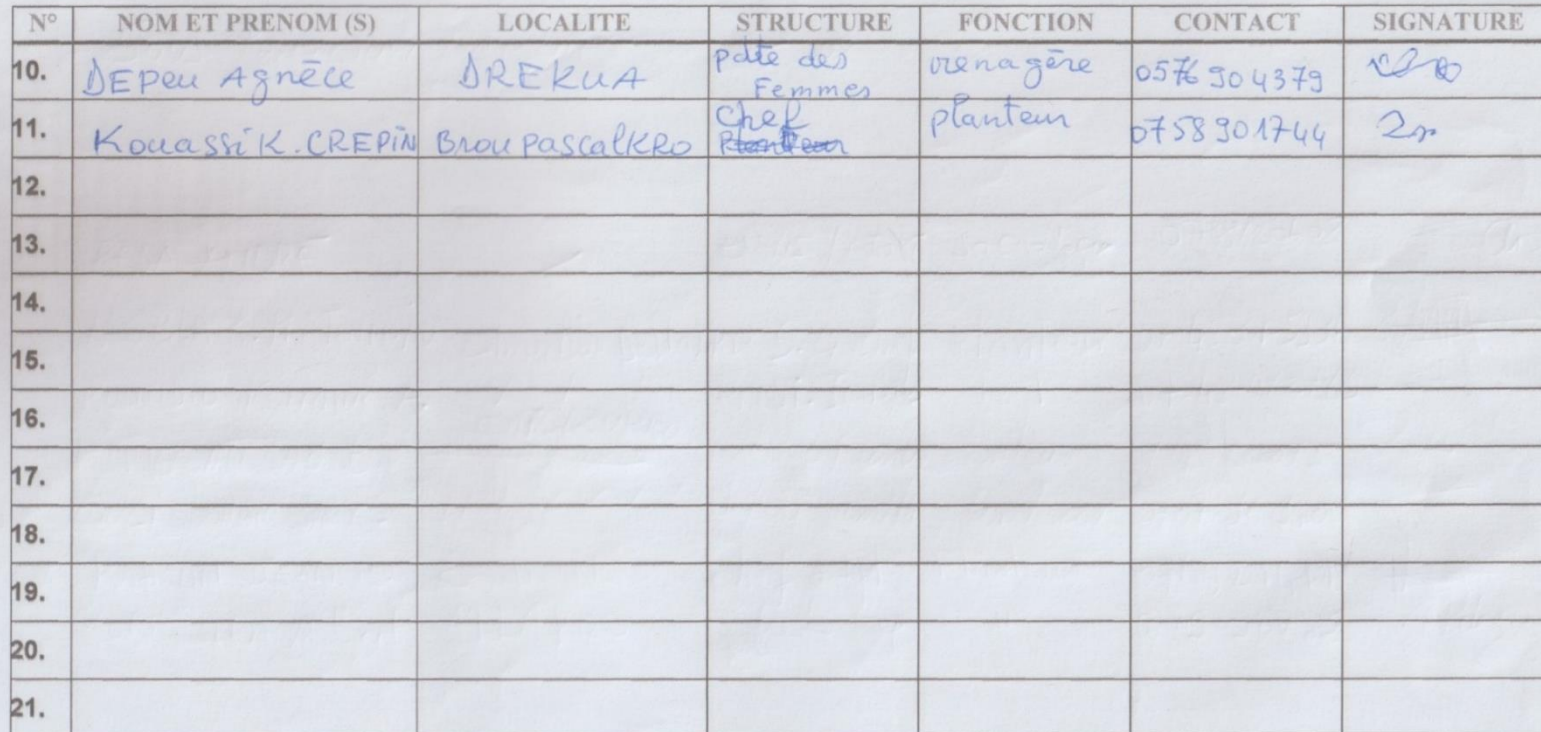 N° NOM ET PRENOM (S) LOCALITE STRUCTURE FONCTION CONTACT SIGNATURE
10. DEPeu Agnèce DREKUA pdte des Femmes menagère 0576904379
11. Kouassi K. CREPIN BrouPascalKRO Chef planteur 0758901744
12.
13.
14.
15.
16.
17.
18.
19.
20.
21.